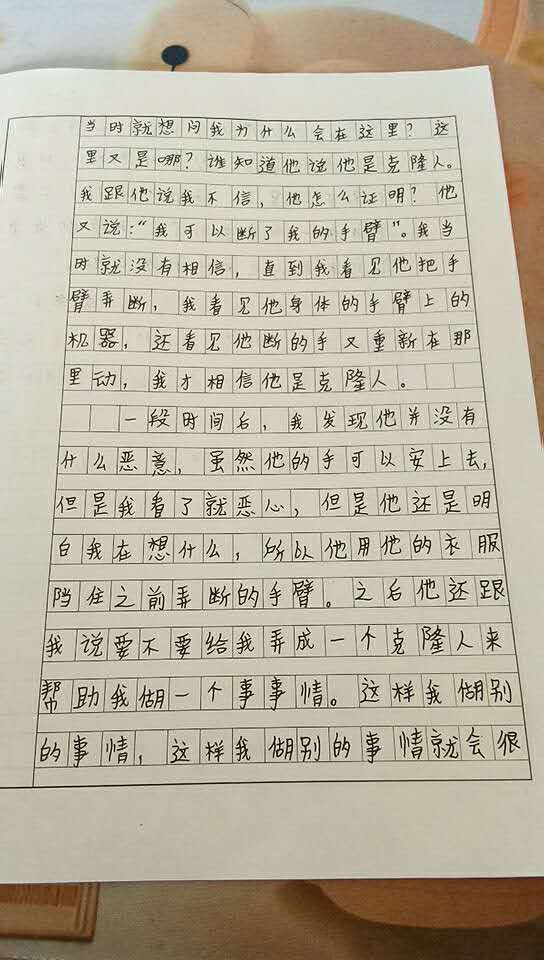 当时就想问我为什么会在这里？这
里又是哪？谁知道他说他是克隆人。
我跟他说我不信，他怎么证明？他
又说：“我可以断了我的手臂”。我当
时就没有相信，直到我看见他把手
臂弄断，我看见他身体的手臂上的
机器，还看见他断的手又重新在那
里动，我才相信他是克隆人。
一段时间后，我发现他并没有
什么恶意，虽然他的手可以安上去，
但是我看了就恶心，但是他还是明
白我在想什么，所以他用他的衣服
挡住之前弄断的手臂。之后他还跟
我说要不要给我弄成一个克隆人来
帮助我做一个事事情。这样我做别
的事情，这样我做别的事情就会很